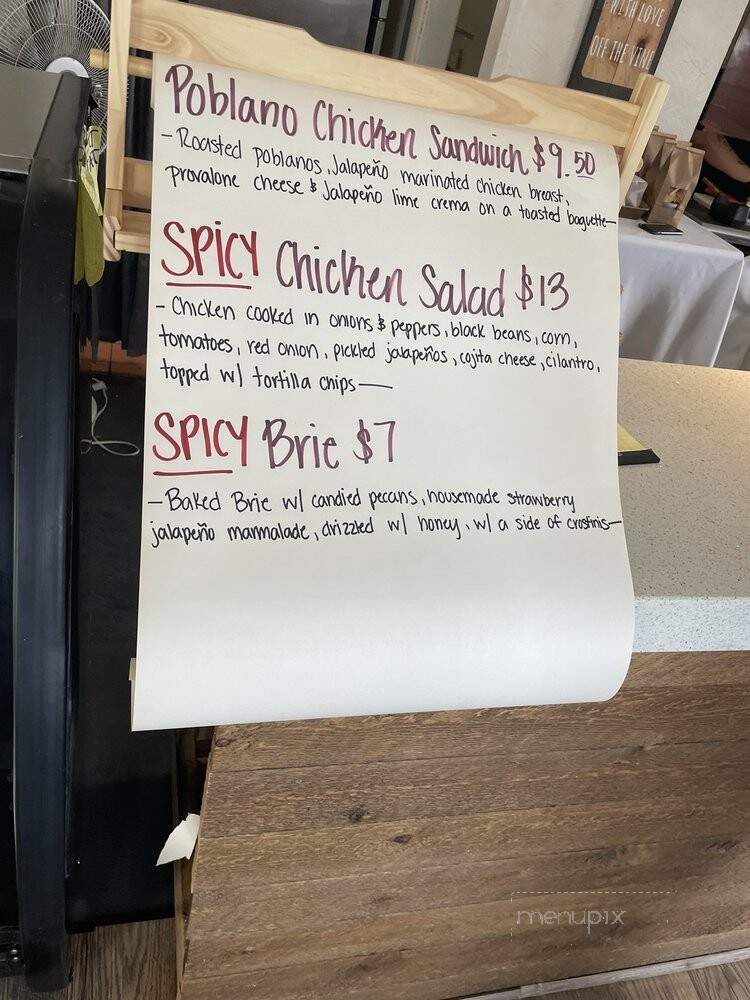 WITH LOVE
OFF THE VINE
Poblano Chicken Sandwich $9.50
-Roasted poblanos, Jalapeño marinated chicken breast,
provalone cheese & Jalapeño lime crema on a toasted baguette-
SPICY Chicken Salad $13
- Chicken cooked in onions & peppers, black beans, corn,
tomatoes, red onion, pickled jalapeños, cojita cheese, cilantro,
topped w/ tortilla chips-
SPICY Brie $7
-Baked Brie w/ candied pecans, housemade strawberry
jalapeño marmalade, drizzled w/ honey, w/ a side of crostinis-
menupix